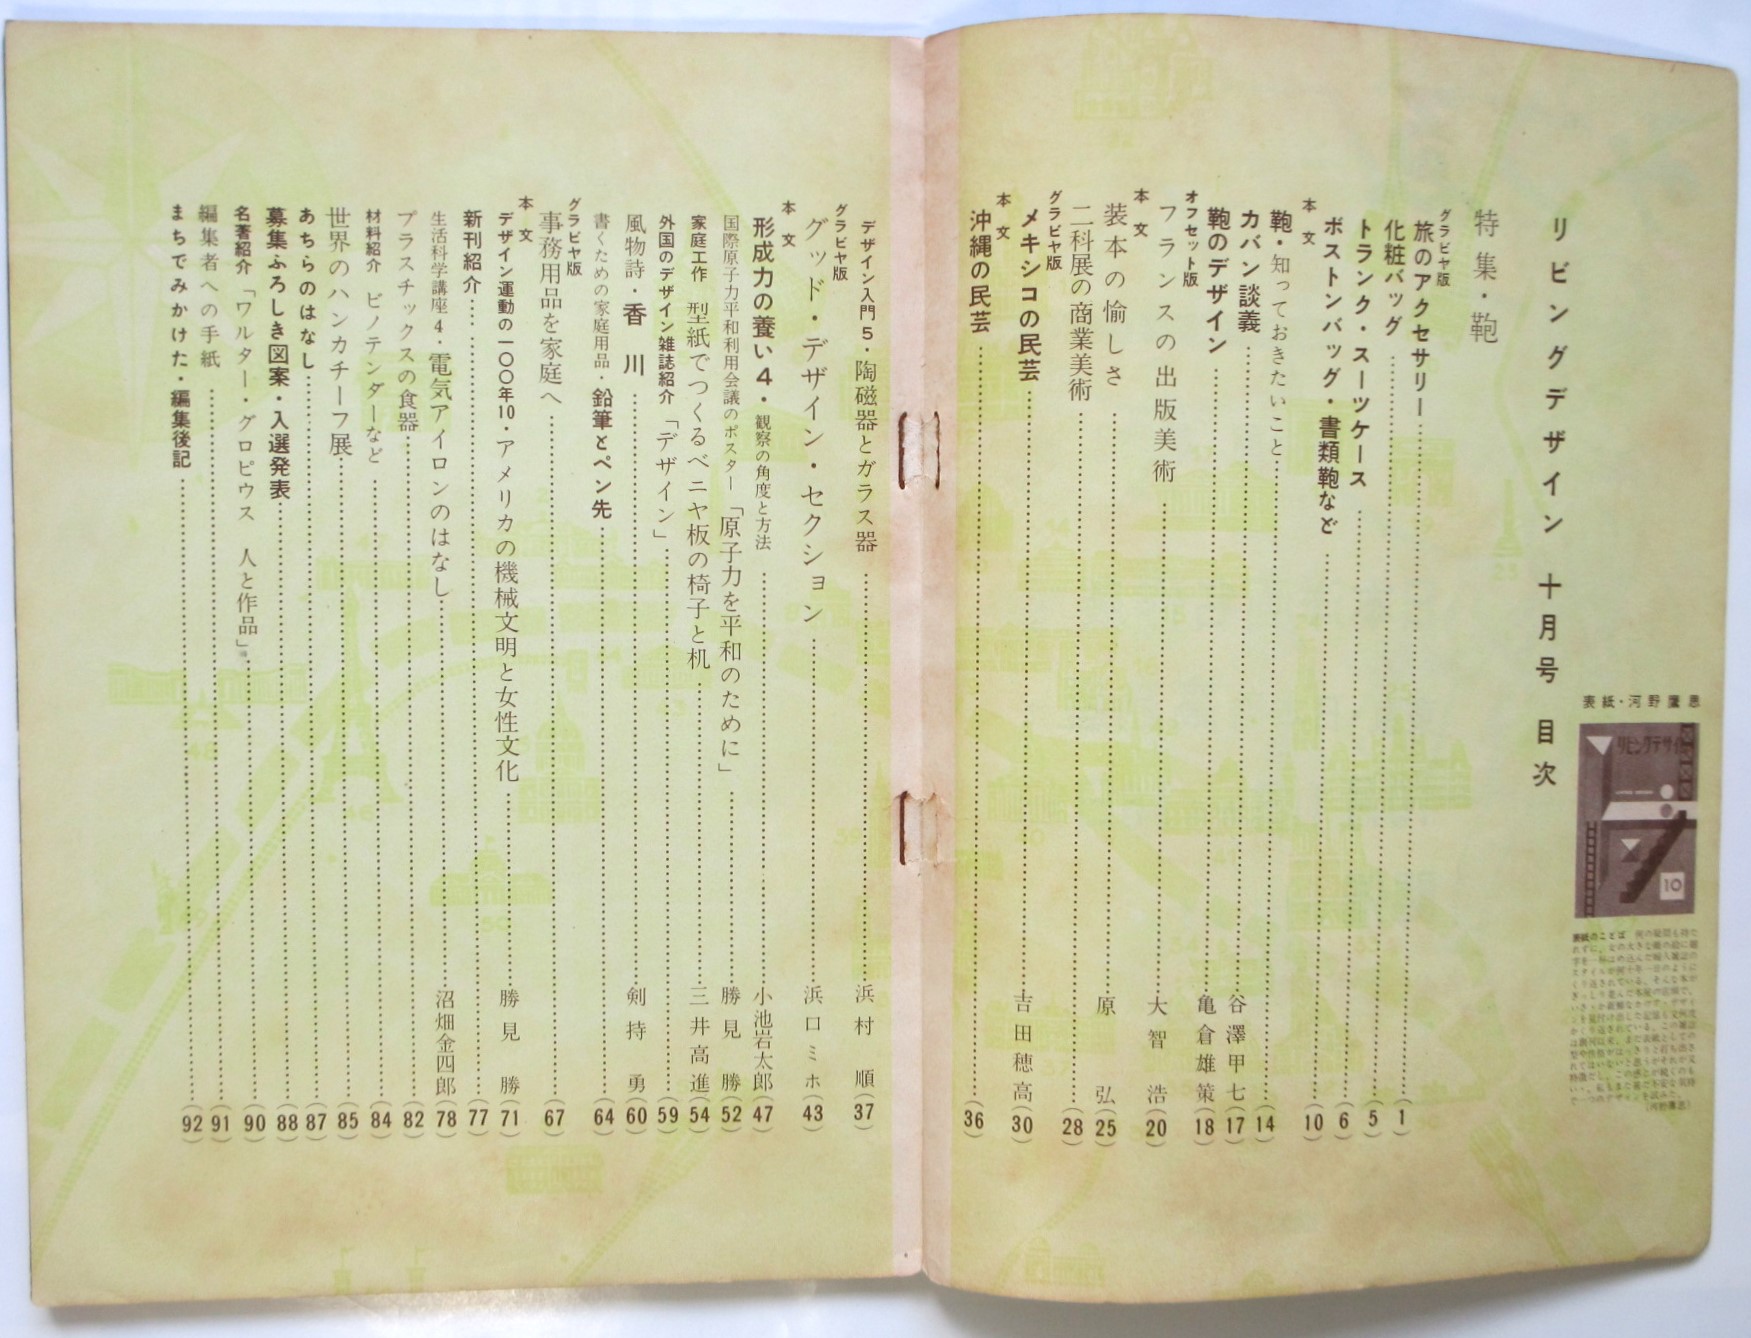 リビングデザイン 十月号 目次
表紙・河野鷹思
リビングデザイン
10
表紙のことば
特集・鞄
グラビヤ版
旅のアクセサリー (1)
化粧バッグ (5)
トランク・スーツケース (6)
ボストンバッグ・書類鞄など (10)
本文
鞄・知っておきたいこと (14)
カバン談義 谷澤甲七 (17)
鞄のデザイン 亀倉雄策 (18)
オフセット版
フランスの出版美術 大智浩 (20)
本文
装本の愉しさ 原弘 (25)
二科展の商業美術 (28)
グラビヤ版
メキシコの民芸 吉田穂高 (30)
本文
沖縄の民芸 (36)
デザイン入門5・陶磁器とガラス器 浜村順 (37)
グラビヤ版
グッド・デザイン・セクション 浜口ミホ (43)
本文
形成力の養い4・観察の角度と方法 小池岩太郎 (47)
国際原子力平和利用会議のポスター「原子力を平和のために」 勝見勝 (52)
家庭工作 型紙でつくるベニヤ板の椅子と机 三井高進 (54)
外国のデザイン雑誌紹介「デザイン」 (59)
風物詩・香川 剣持勇 (60)
書くための家庭用品・鉛筆とペン先 (64)
グラビヤ版
事務用品を家庭へ (67)
本文
デザイン運動の一〇〇年10・アメリカの機械文明と女性文化 勝見勝 (71)
新刊紹介 (77)
生活科学講座4・電気アイロンのはなし 沼畑金四郎 (78)
プラスチックスの食器 (82)
材料紹介 ピノテンダーなど (84)
世界のハンカチーフ展 (85)
あちらのはなし (87)
募集ふろしき図案・入選発表 (88)
名著紹介「ワルター・グロピウス 人と作品」 (90)
編集者への手紙 (91)
まちでみかけた・編集後記 (92)